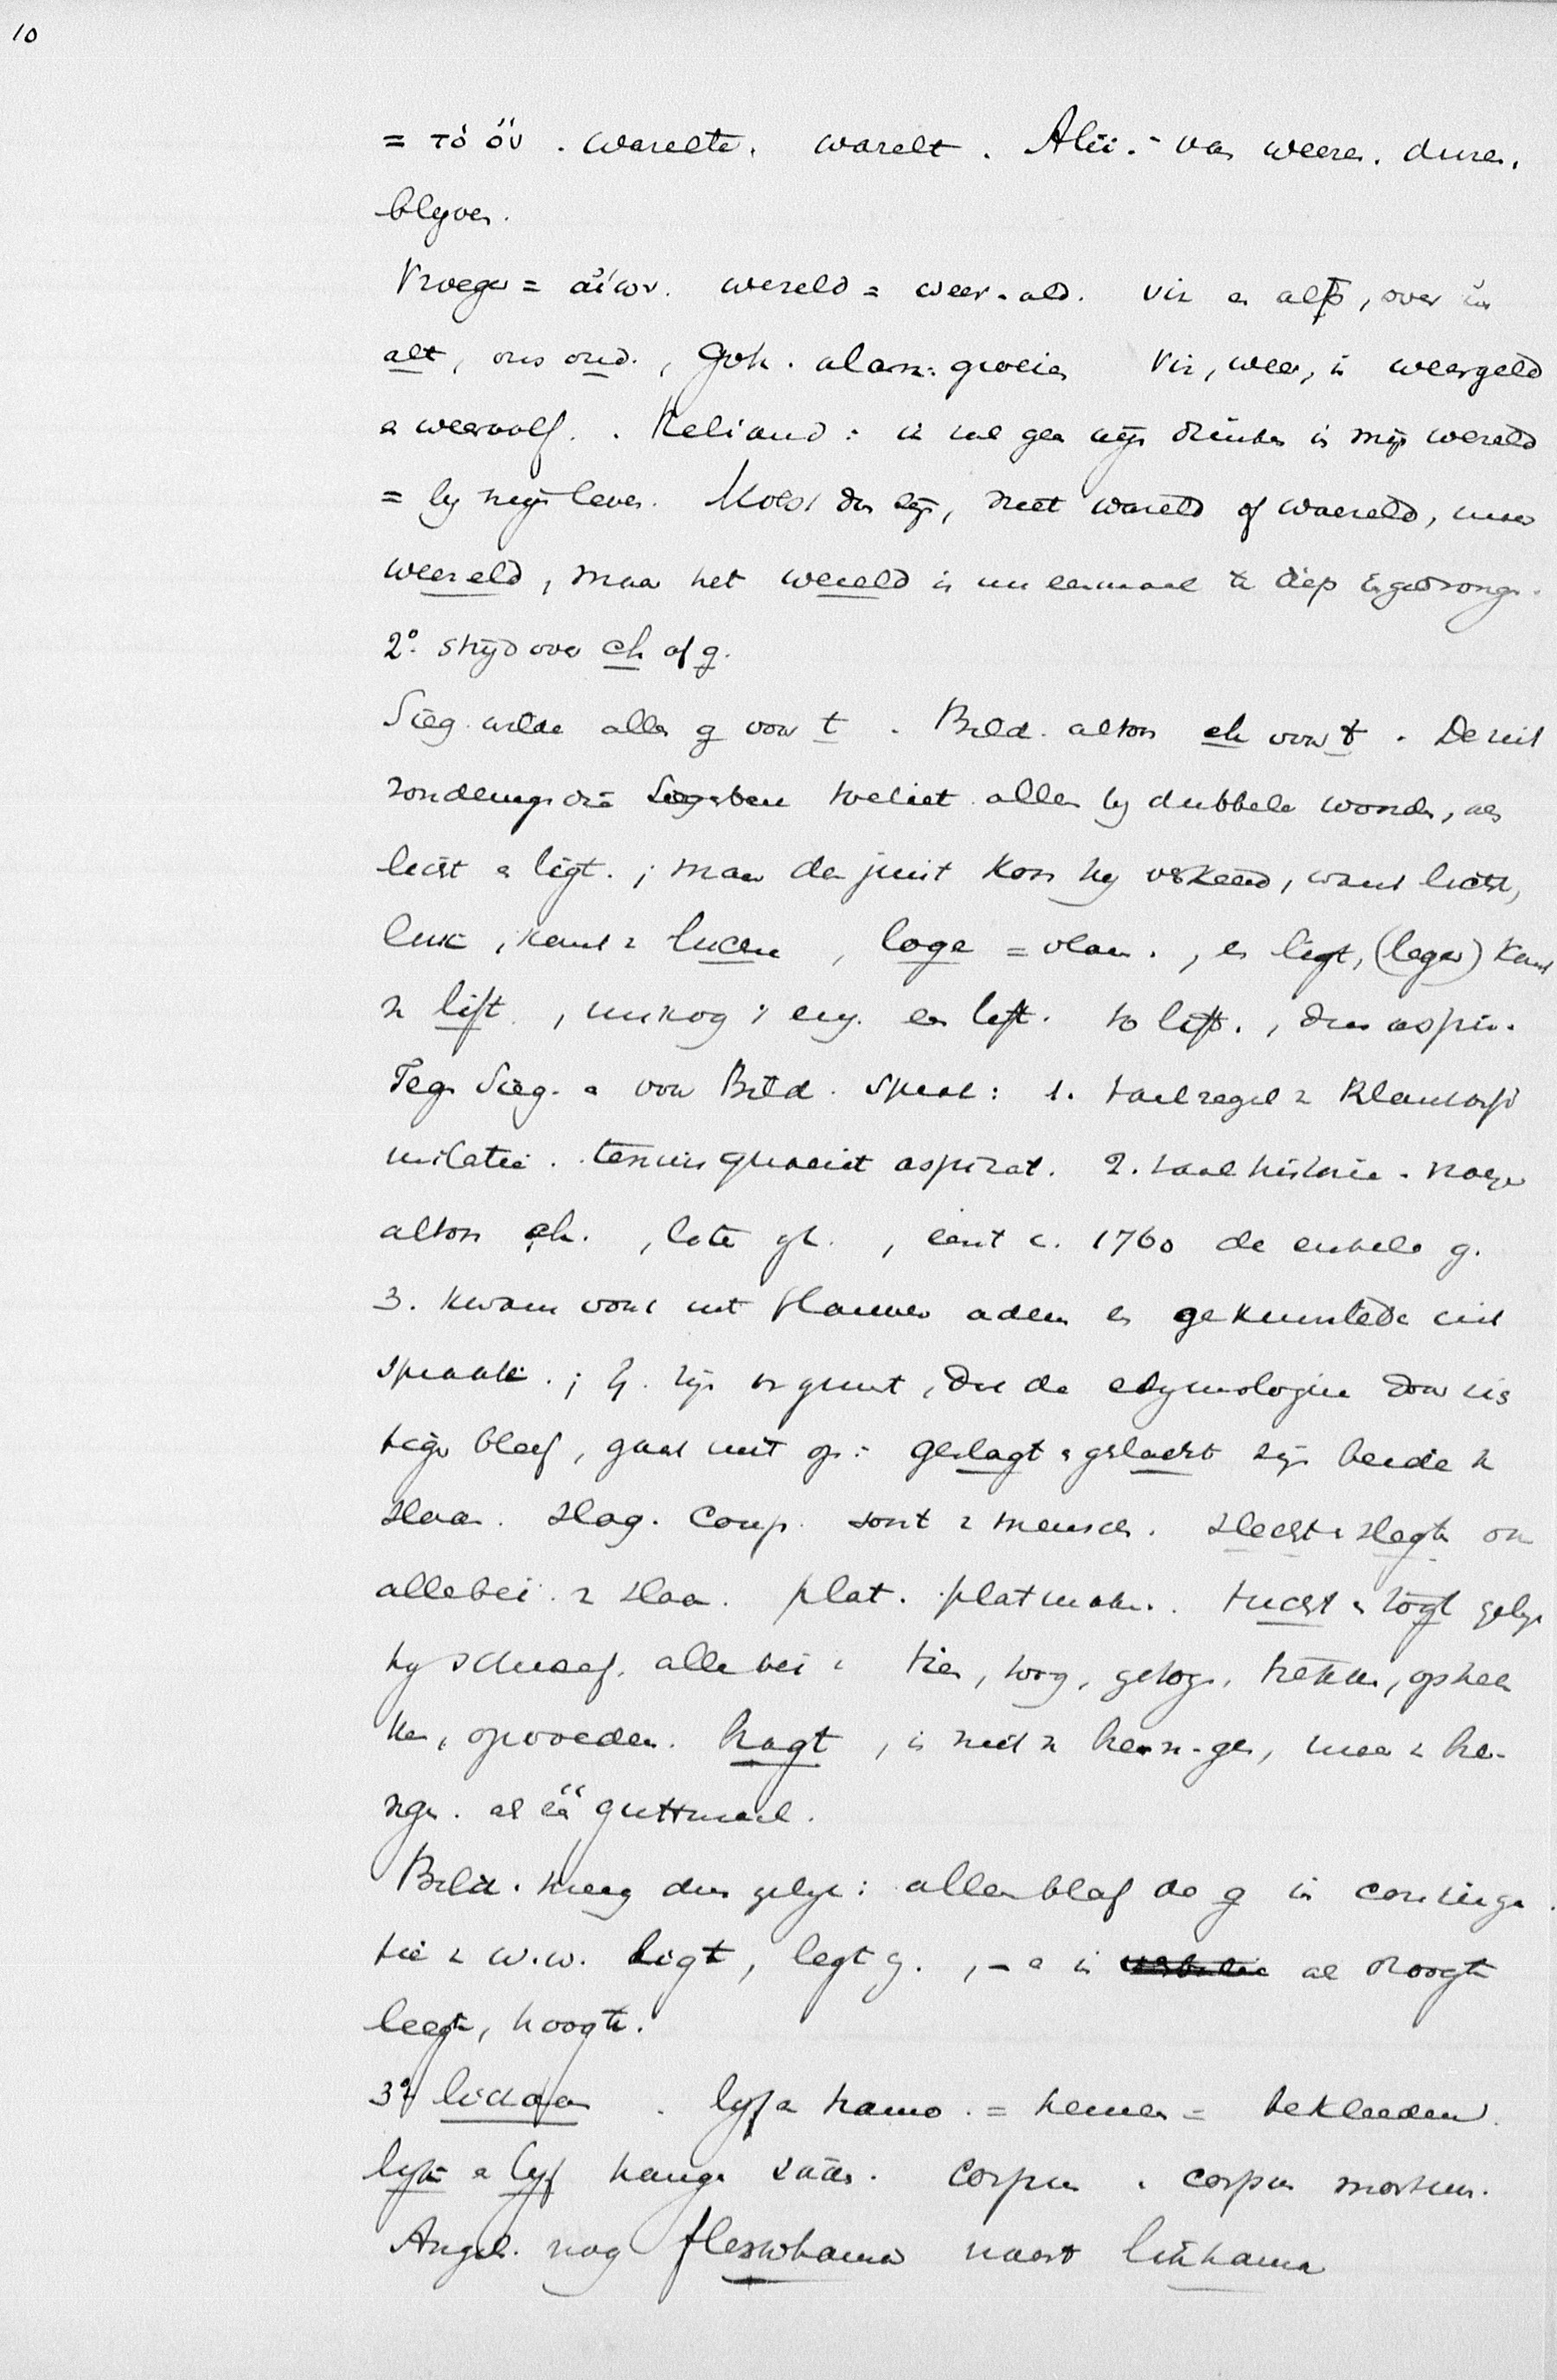 10
= τὸ ὄν . warelte . warelt . van weeren . duren .
blyven .
Vroeger = αἰών . wereld = weer-ald . vir en over in
alt , ons oud . , Goth . alan : groeien Vir , weer , in weergeld
en weerwolf . . Heliand : ik zal geen wijn drinken in mijn wereld
= by mijn leven . Moest dus zijn , niet wareld of waereld , maar
weereld , maar het wereld is nu eenmaal te diep ingedrongen .
2o. strijd over ch of g .
Sieg . wilde alles g voor t . Bild . altoos ch voor t . De uit
zonderingen die Siegenbeek toeliet alleen by dubbele woorden , als
licht en ligt . ; maar dan juist koos hy verkeerd , want licht ,
lux , komt v lucere , loge = vlam . , en ligt , (leger) komt
v lift . , nu nog in eng . een lift . to lift . , dus aspir .
Tegen Sieg . en voor Bild . spreekt : 1 . taalregel v klankassi
milatie . tenuis aspirat . 2 . taalhistorie . vroeger
altoos ch . , later gh . , eerst c . 1760 de enkele g .
3 . kwam voort uit Hannover adem en gekunstelde uit
spraak . ; H . zijn argument , dat de etymologie daar
bleef , gaat niet op : geslagt en geslacht zijn beide v
slaan . slag . Coup . soort v menschen . slecht en slegt
allebei v slaan . plat . plat maken . tucht en togt gelijk
hy schreef , allebei v tien , toog , getogen , trekken , optrek
ken , opvoeden . hagt , is niet v han-gen , maar v ha-
ngen . als één gutturaal .
Bild . kreeg dus gelijk : alleen bleef de g in conjuga
tie v w.w. ligt , legt g . , - en in als droogte
leegte , hoogte .
3o. lichaam . lyf en hamo . = hemen = bekleeden .
lyk en lyf hangen samen . corpus . corpus mortuum .
Angels . nog flesschama naast likhama